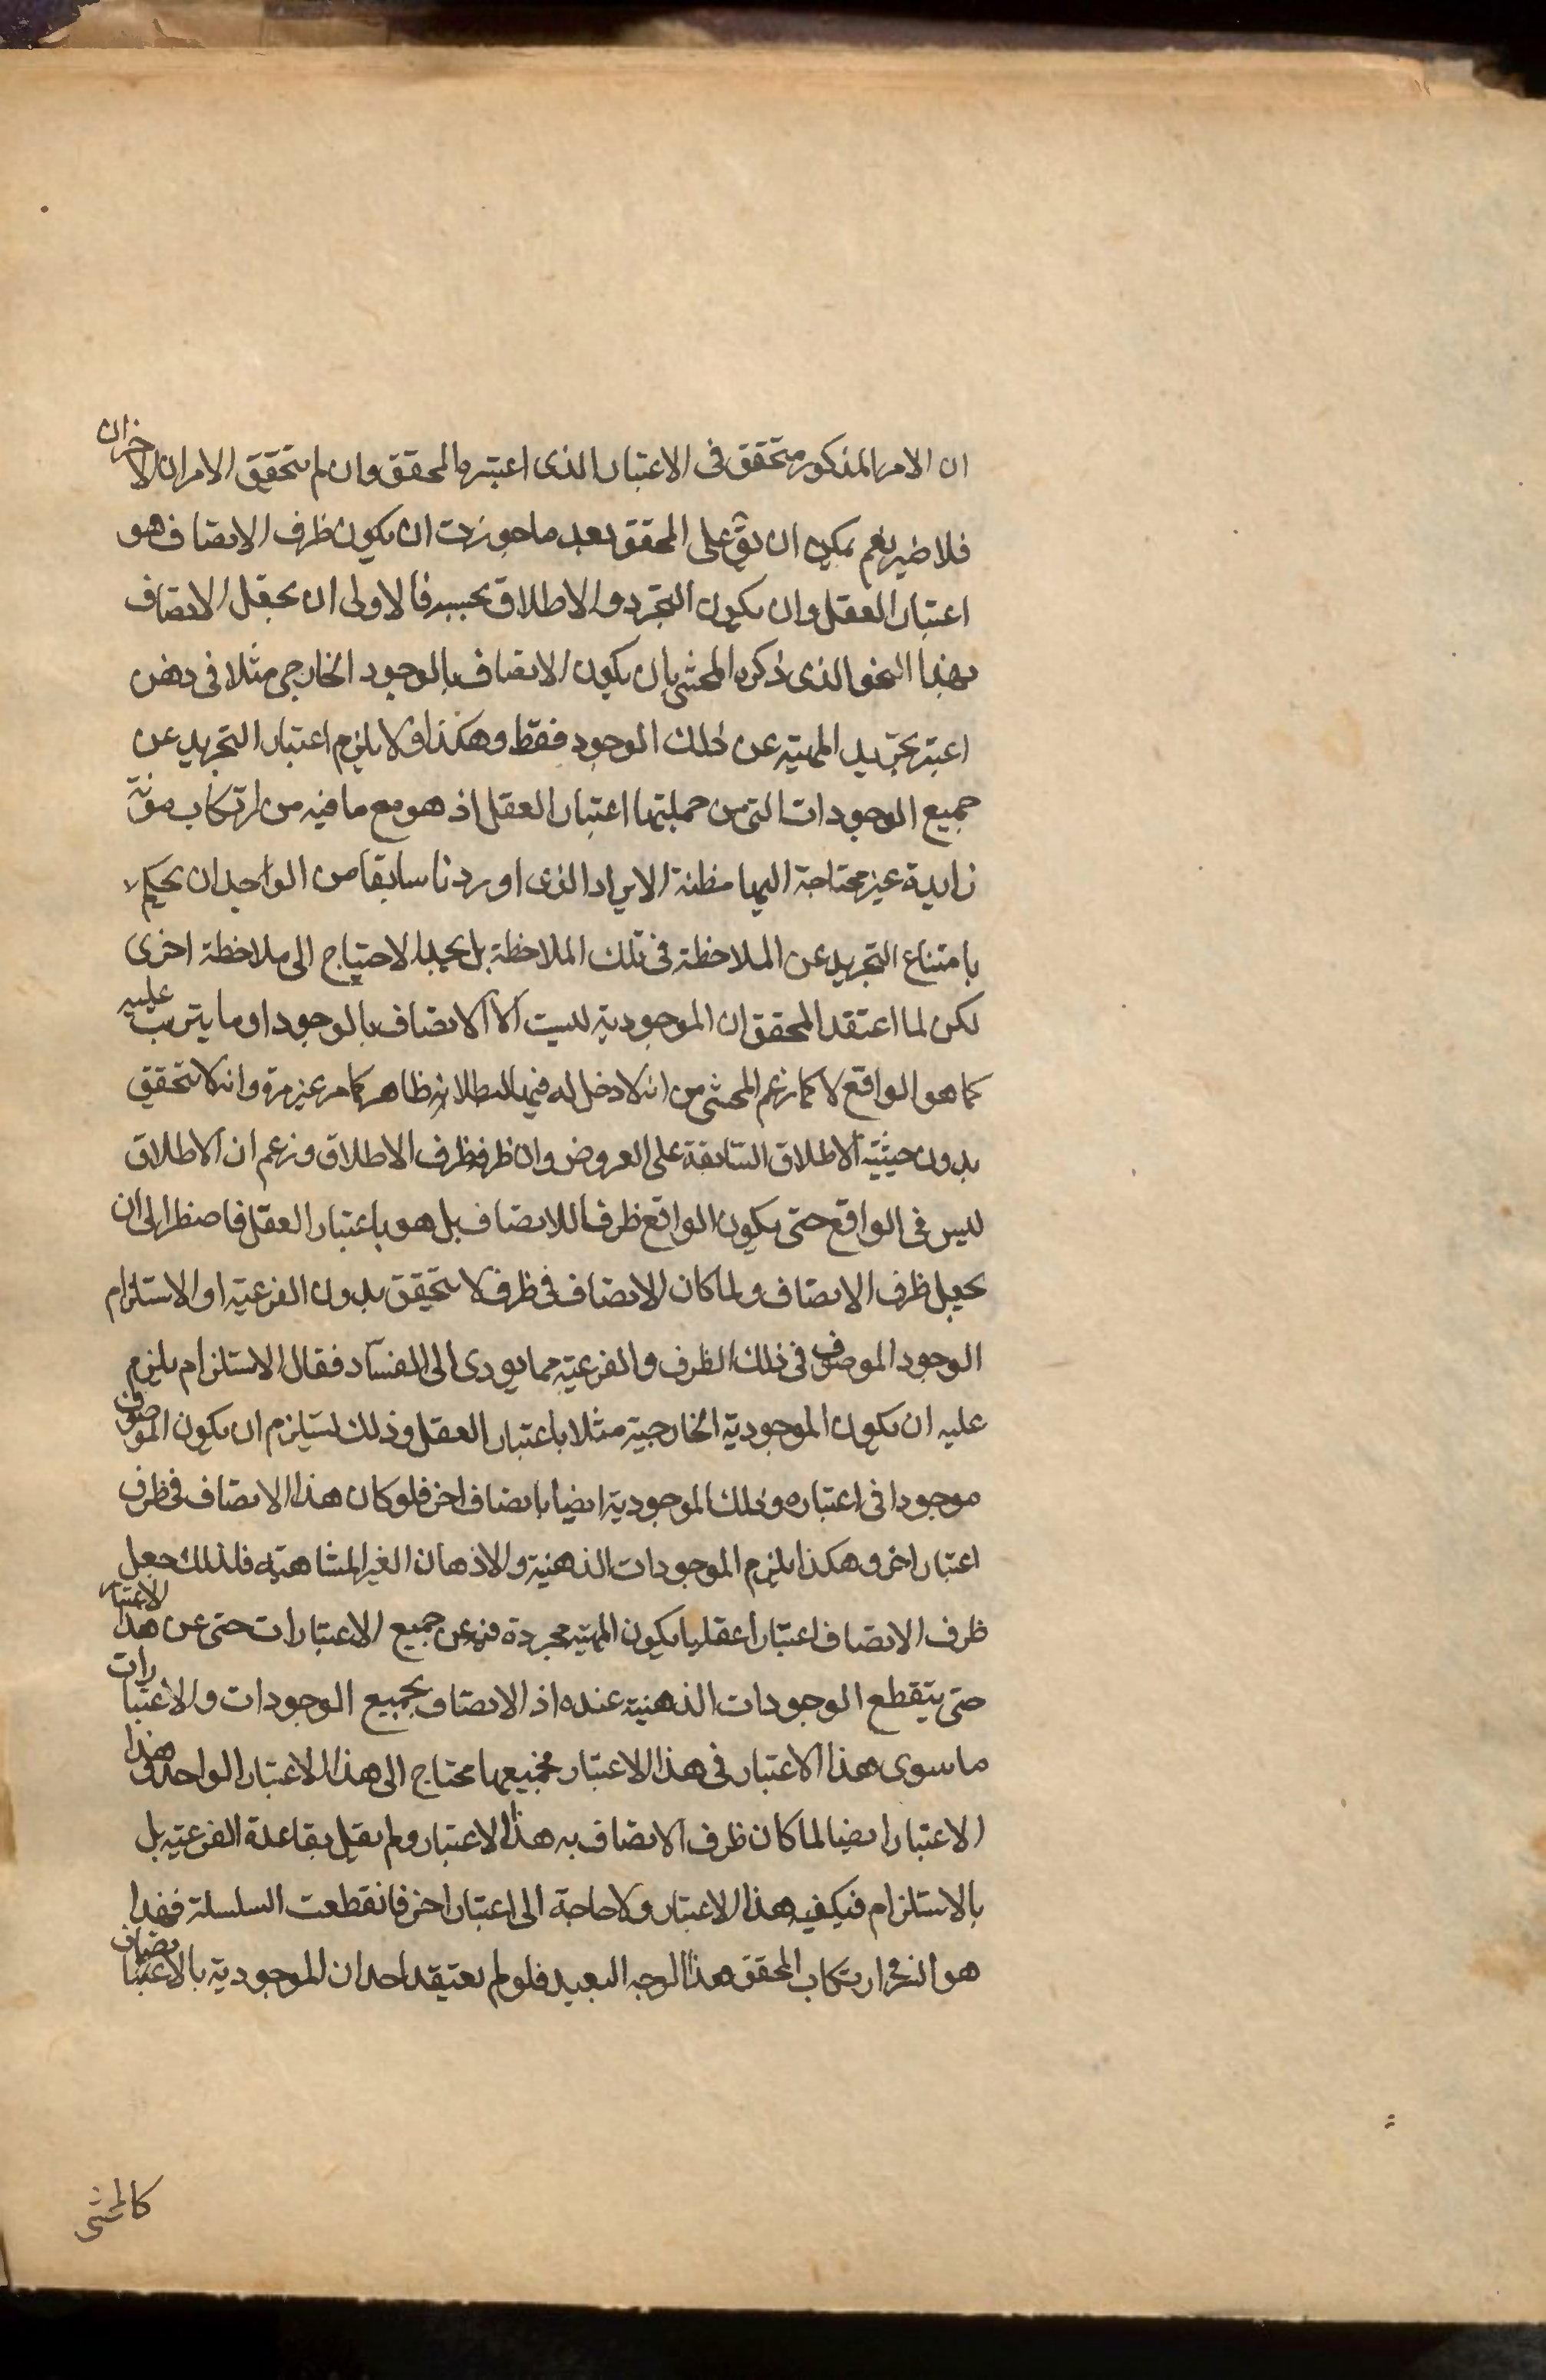 ان الامر المذكور متحقق فى الاعتبار الذى اعتبره المحقق وان لم يتحقق الامران الاخران
فلا ضير نعم يمكن ان يقٓ على المحقق بعد ما جوزت ان يكون ظرف الاتصاف هو
اعتبار العقل وان يكون التجرد والاطلاق بحسبه فالاولى ان يجعل الاتصاف
بهذا النحو الذى ذكره المحشى بان يكون الاتصاف بالوجود الخارجى مثلا فى ذهن
اعتبر تجريد المهية عن ذلك الوجود فقط وهكذا ولا يلزم اعتبار التجريد عن
جميع الوجودات التى من جملتها اعتبار العقل اذ هو مع ما فيه من ارتكاب مؤنة
زايدة غير محتاجة اليها مظنة الايراد الذى اوردنا سابقا من الواجدان يحكم
بامتناع التجريد عن الملاحظة فى تلك الملاحظة بل الاحتياج الى ملاحظة اخرى
لكن لما اعتقد المحقق ان الموجودية ليست الا الاتصاف بالوجود او ما يترتب عليه
كما هو الواقع لا كما زعم المحشى من انه لا دخل له فيها لبطلانه ظاهر كما مر غير مرة وانه لا يتحقق
بدون حيثية الاطلاق السابقة على العروض وان ظرفه ظرف الاطلاق وزعم ان الاطلاق
ليس فى الواقع حتى يكون الواقع ظرفا للاتصاف بل هو باعتبار العقل فاضطر الى ان
يجعل ظرف الاتصاف ولما كان الاتصاف فى ظرف لا يتحقق بدون الفرعية او الاستلزام
الوجود الموصوف فى ذلك الظرف والفرعية مما يودى الى الفساد فقال الاستلزام يلزم
عليه ان يكون الموجودية الخارجية مثلا باعتبار العقل وذلك يستلزم ان يكون الموصوف
موجودا فى اعتباره وتلك الموجودية ايضا باتصاف اخر فلو كان هذا الاتصاف فى ظرف
اعتبار اخر وهكذا يلزم الموجودات الذهنية والاذهان الغير المتناهية فلذلك جعل
ظرف الاتصاف اعتبارا عقليا يكون المهية مجردة فيه عن جميع الاعتبارات حتى عن هذا الاعتبار
حتى يتقطع الوجودات الذهنية عنده اذ الاتصاف بجميع الوجودات والاعتبارات
ما سوى هذا الاعتبار فى هذا الاعتبار فجميعها محتاج الى هذا الاعتبار الواحد وهذا
الاعتبار ايضا لما كان ظرف الاتصاف به هذا الاعتبار ولم يقل بقاعدة الفرعية بل
بالاستلزام فيكفيه هذا الاعتبار ولا حاجة الى اعتبار اخر فانقطعت السلسلة فهذا
هو ارتكاب المحقق هذا الوجه البعيد فلو لم يعتقد احد ان الموجودية
كالمحشى